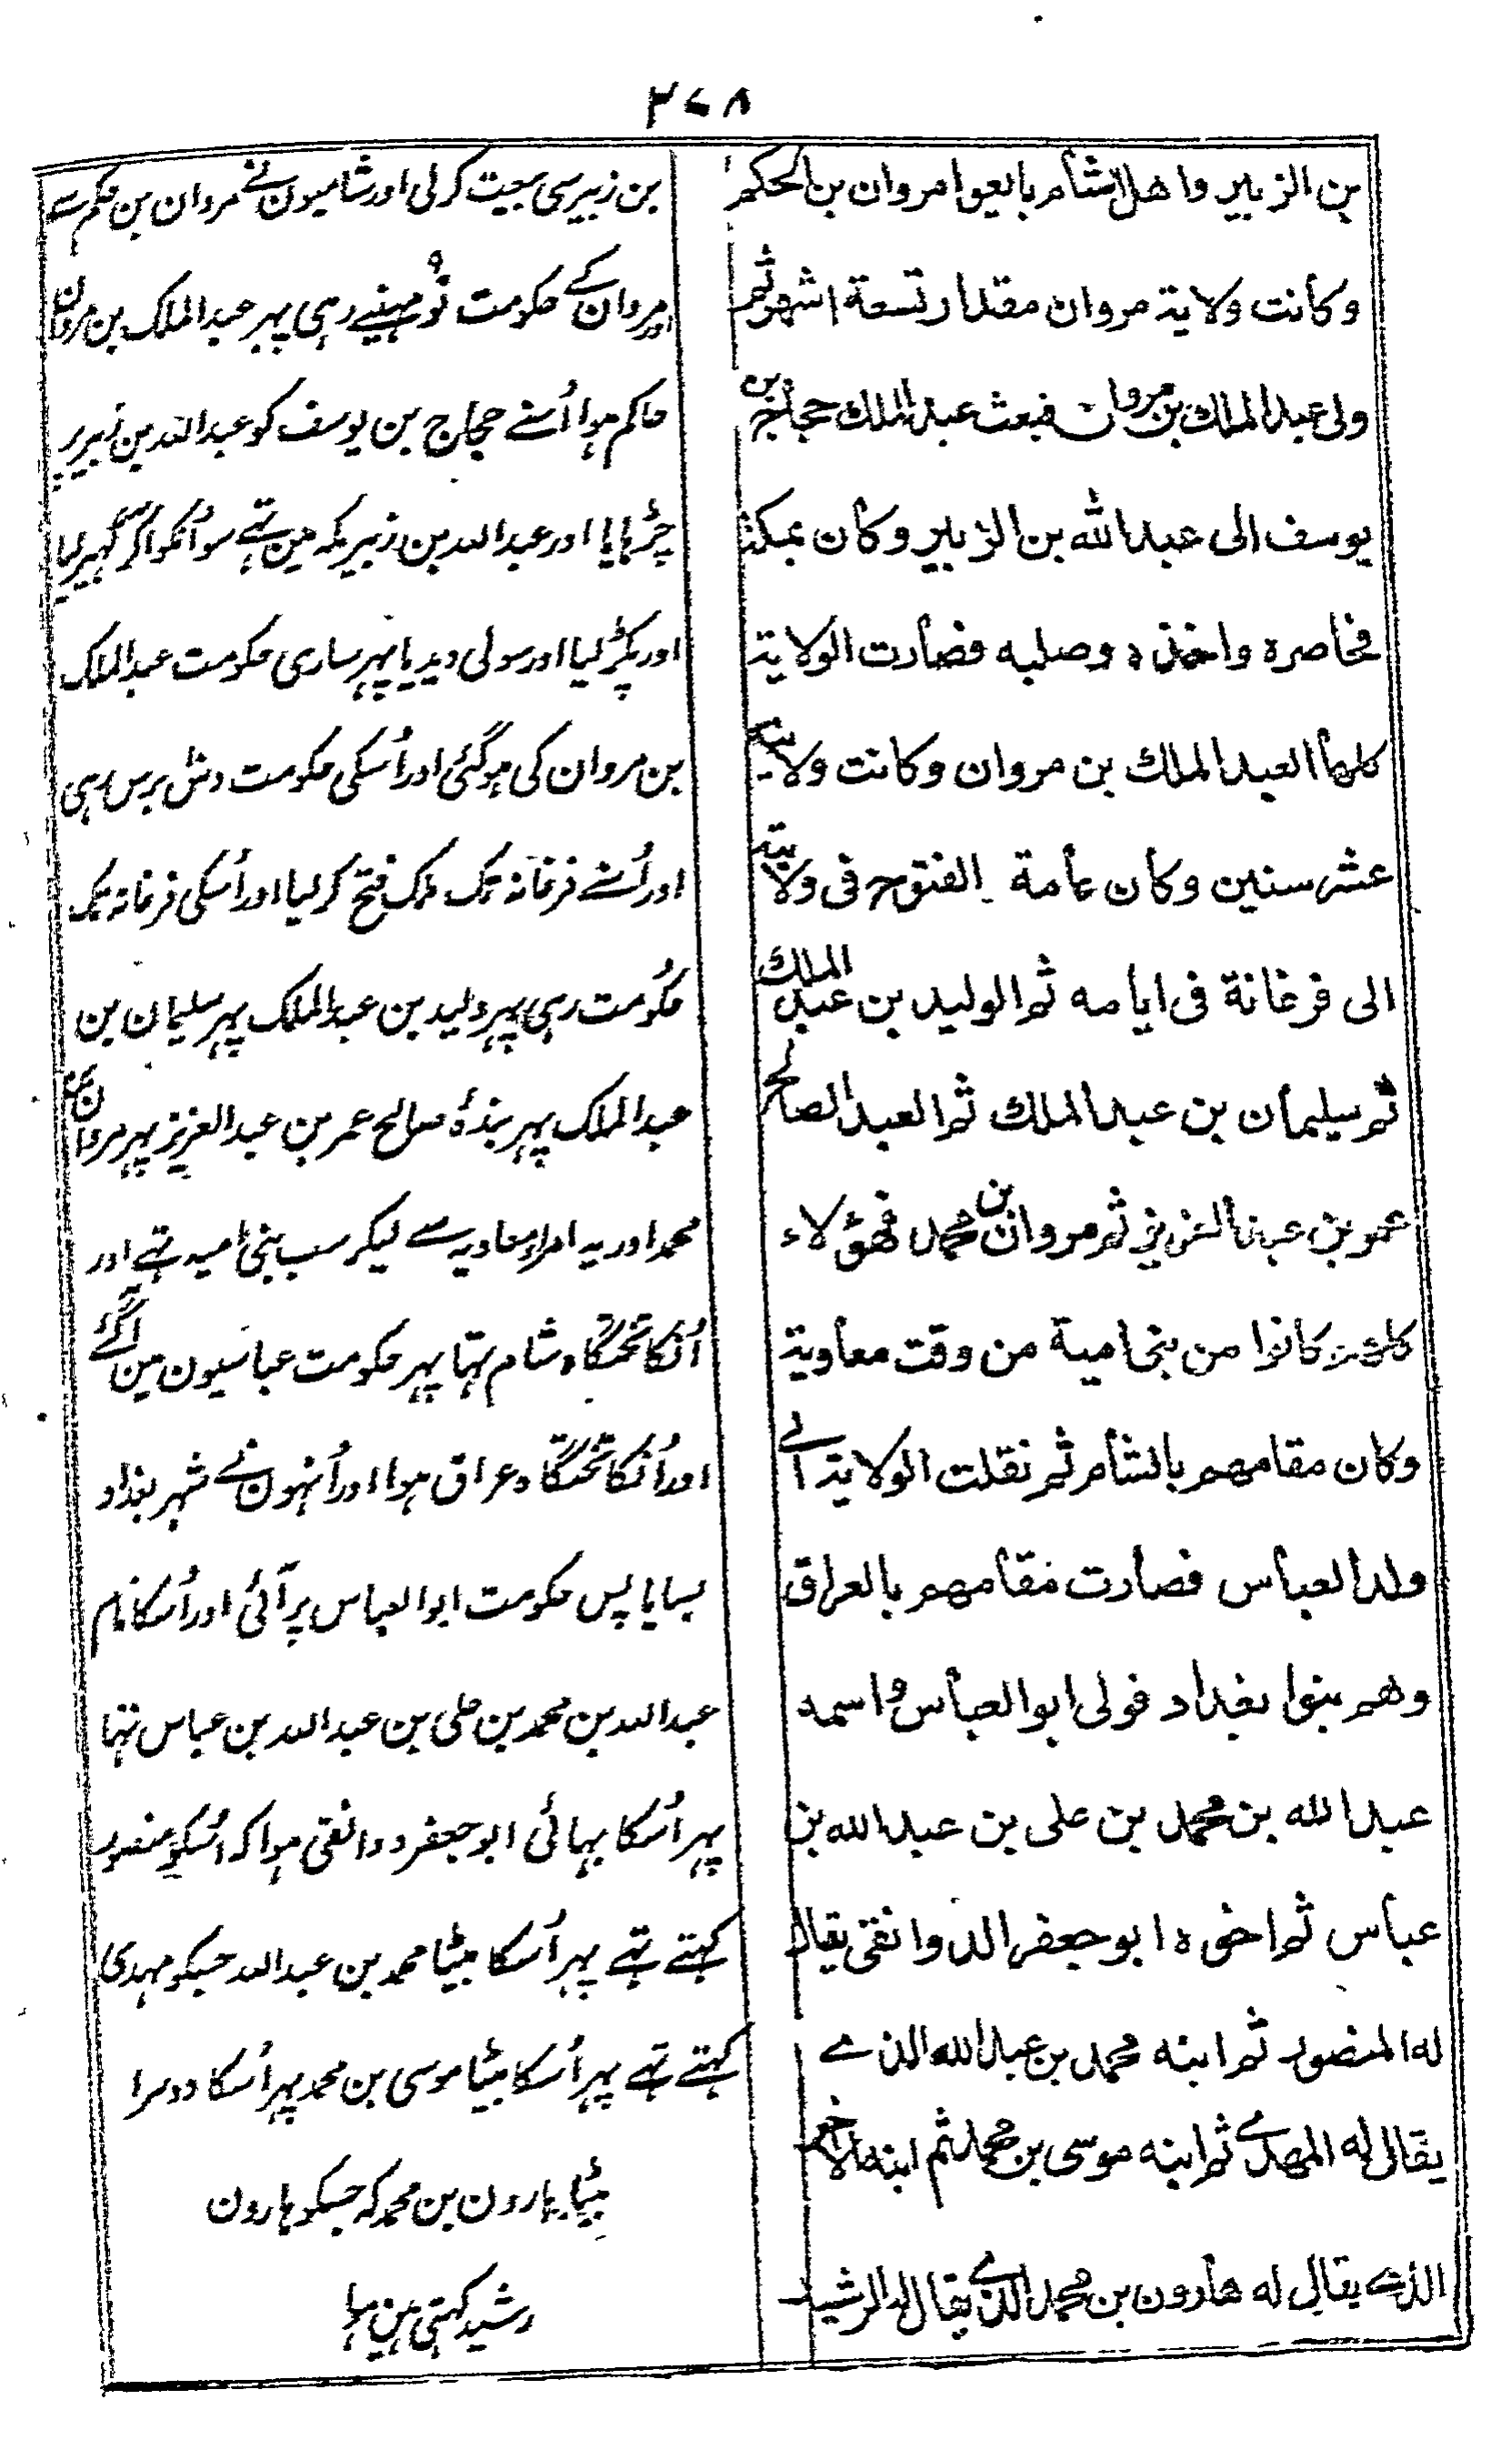 ۲۷۸
بن الزبير واهل الشام بايعوا مروان بن الحكم
وكانت ولاية مروان مقدار تسعة اشهر ثم
ولى عبد الملك بن مروان فبعث عبد الملك حجاج بن
يوسف الى عبد الله بن الزبير وكان بمكة
فحاصره واخذه وصلبه فصارت الولاية
كلها لعبد الملك بن مروان وكانت ولايته
عشر سنين وكان عامة الفتوح فى ولايته
الى فرغانة فى ايامه ثم الوليد بن عبد الملك
ثم سليمان بن عبد الملك ثم العبد الصالح
عمر بن عبد العزيز ثم مروان بن محمد فهؤلاء
كلهم كانوا من بنى امية من وقت معاوية
وكان مقامهم بالشام ثم نقلت الولاية الے
ولد العباس فصارت مقامهم بالعراق
وهم بنوا بغداد فولى ابو العباس واسمه
عبد الله بن محمد بن على بن عبد الله بن
عباس ثم اخوه ابو جعفر الدوانقى يقال
له المنصور ثم ابنه محمد بن عبد الله الذے
يقال له المهدے ثم ابنه موسى بن محمد ثم ابنه الاخر
الذے يقال له هارون بن محمد الذے يقال له الرشيد
بن زبیر سی بیعت کرلی اور شامیون نے مروان بن حکم سے
اور مروان کے حکومت نو ۹ مہینے رہی پہر عبد الملک بن مروان
حاکم ہوا اُسنے حجاج بن یوسف کو عبد اللہ بن زبیر پر
چڑہایا اور عبد اللہ بن زبیر مکہ مین تہے سو اُنکو اکر گہیر لیا
اور پکڑ لیا اور سولی دیدیا پہر ساری حکومت عبد الملک
بن مروان کی ہوگئی اور اُسکی حکومت دس برس رہی
اور اُسنے فرغانہ تک ملک فتح کر لیا اور اُسکی فرغانہ تک
حکُومت رہی پہر ولید بن عبد الملک پہر سلیمان بن
عبد الملک پہر بندۂ صالح عمر بن عبد العزیز پہر مروان بن
محمد اور یہ امراء معاویہ سے لیکر سب بنی امیہ تہے اور
اُنکا تختگاہ شام تہا پہر حکومت عباسیون مین آگئے
اور اُنکا تختگاہ عراق ہوا اور اُنہون نے شہر بغداد
بسایا پس حکومت ابو العباس پر آئی اور اُسکا نام
عبد اللہ بن محمد بن علی بن عبد اللہ بن عباس تہا
پہر اُسکا بہائی ابو جعفر دوانقی ہوا کہ اُسکو منصور
کہتے تہے پہر اُسکا بیٹا محمد بن عبد اللہ جسکو مہدی
کہتے تہے پہر اُسکا بیٹا موسی بن محمد پہر اُسکا دوسرا
بیٹا ہارون بن محمد کہ جسکو ہارون
رشید کہتی ہین ہوا